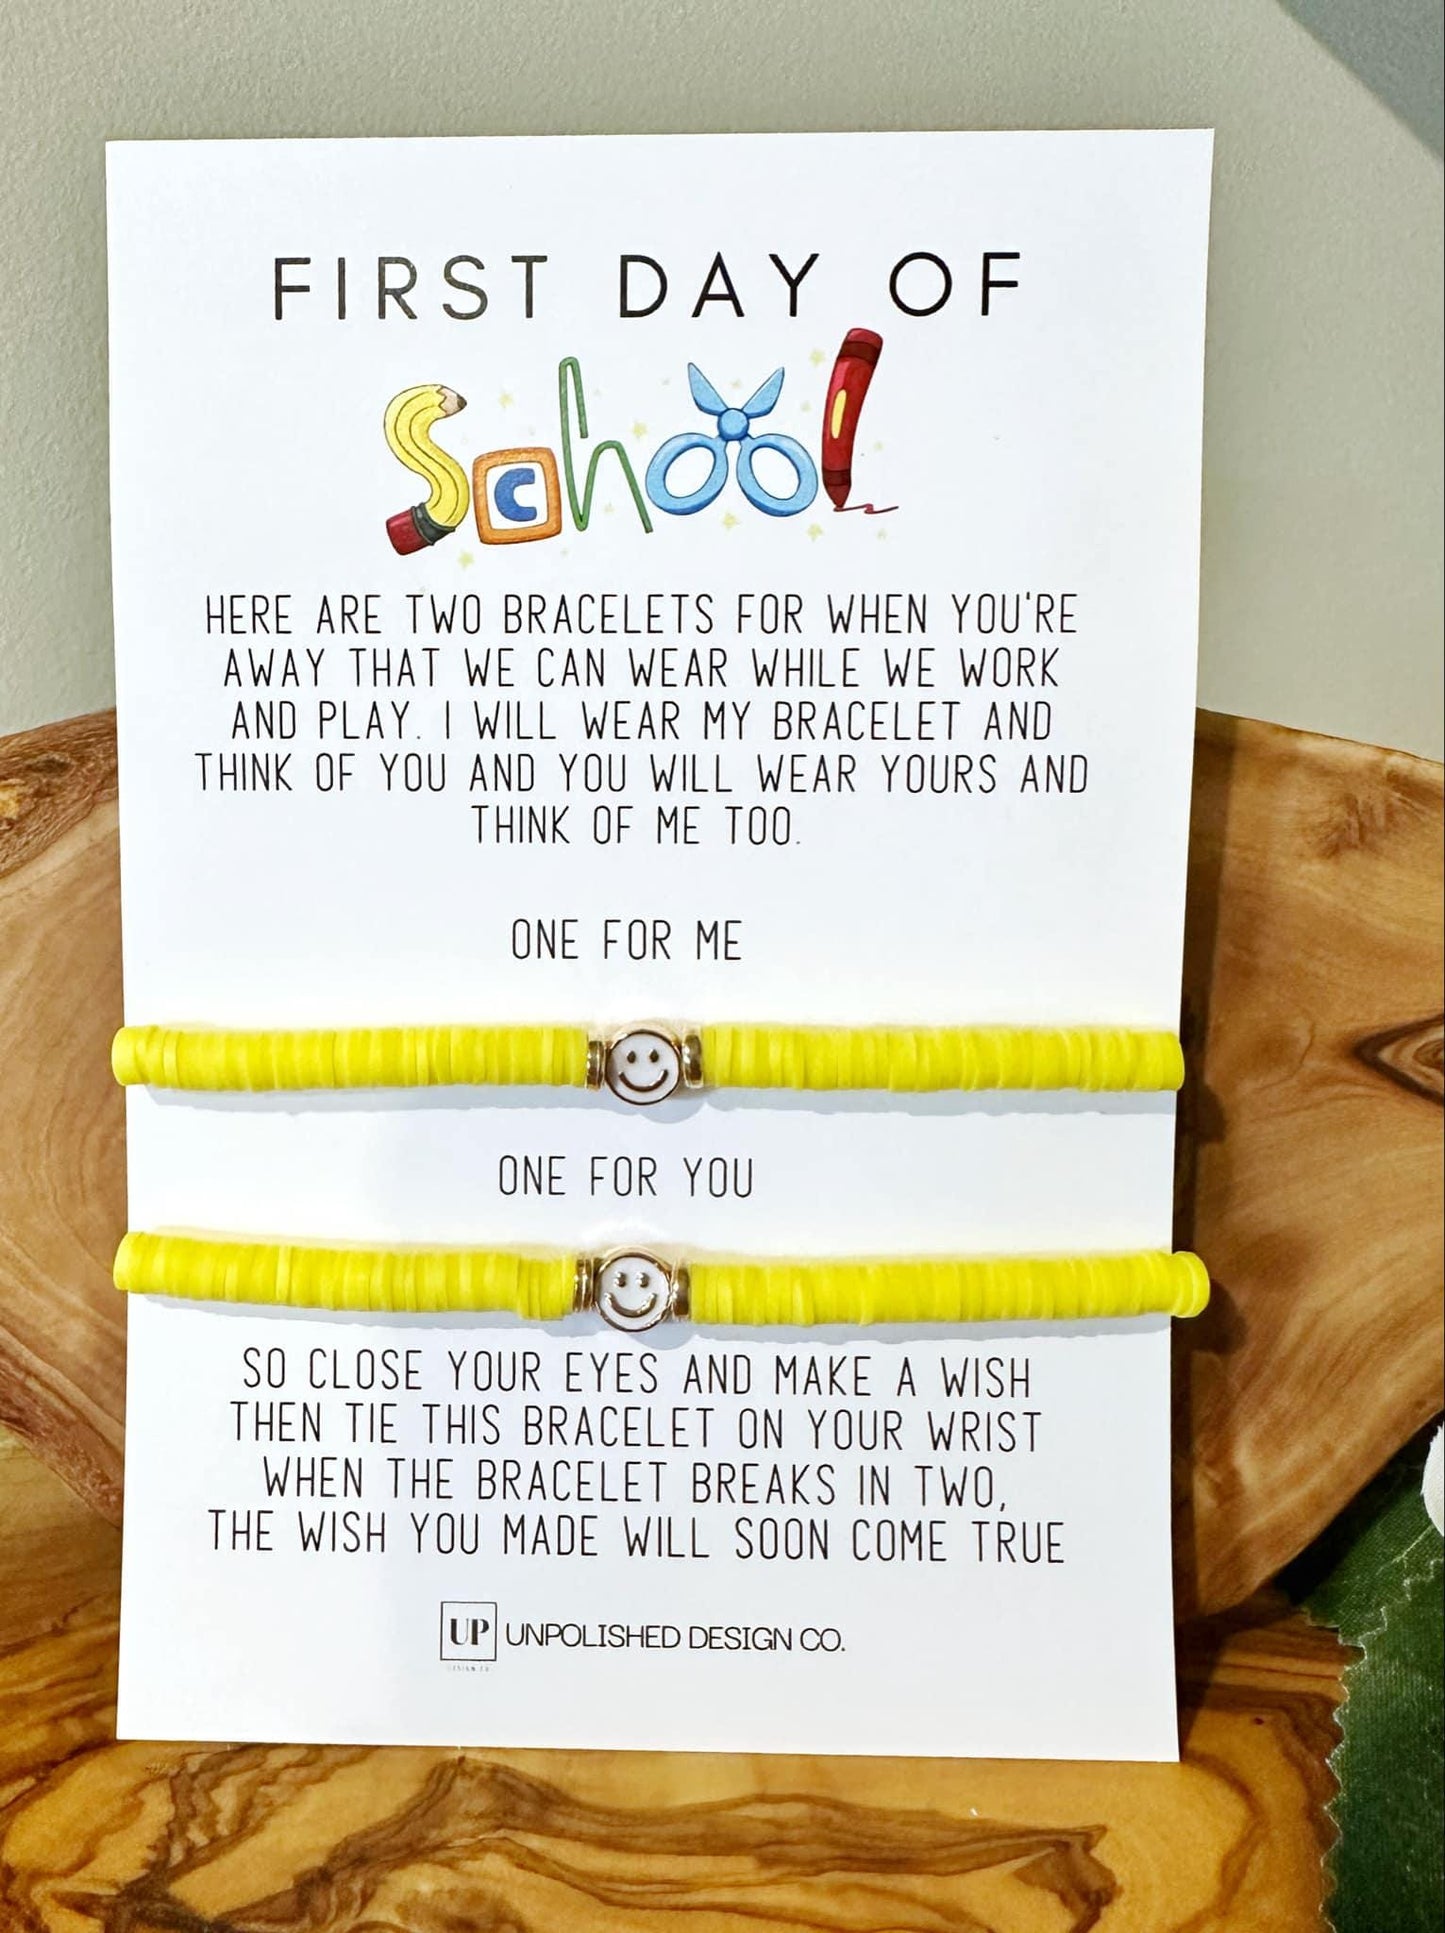 FIRST DAY OF
School
HERE ARE TWO BRACELETS FOR WHEN YOU'RE
AWAY THAT WE CAN WEAR WHILE WE WORK
AND PLAY. I WILL WEAR MY BRACELET AND
THINK OF YOU AND YOU WILL WEAR YOURS AND
THINK OF ME TOO.
ONE FOR ME
ONE FOR YOU
SO CLOSE YOUR EYES AND MAKE A WISH
THEN TIE THIS BRACELET ON YOUR WRIST
WHEN THE BRACELET BREAKS IN TWO,
THE WISH YOU MADE WILL SOON COME TRUE
UP UNPOLISHED DESIGN CO.
DESIGN CO